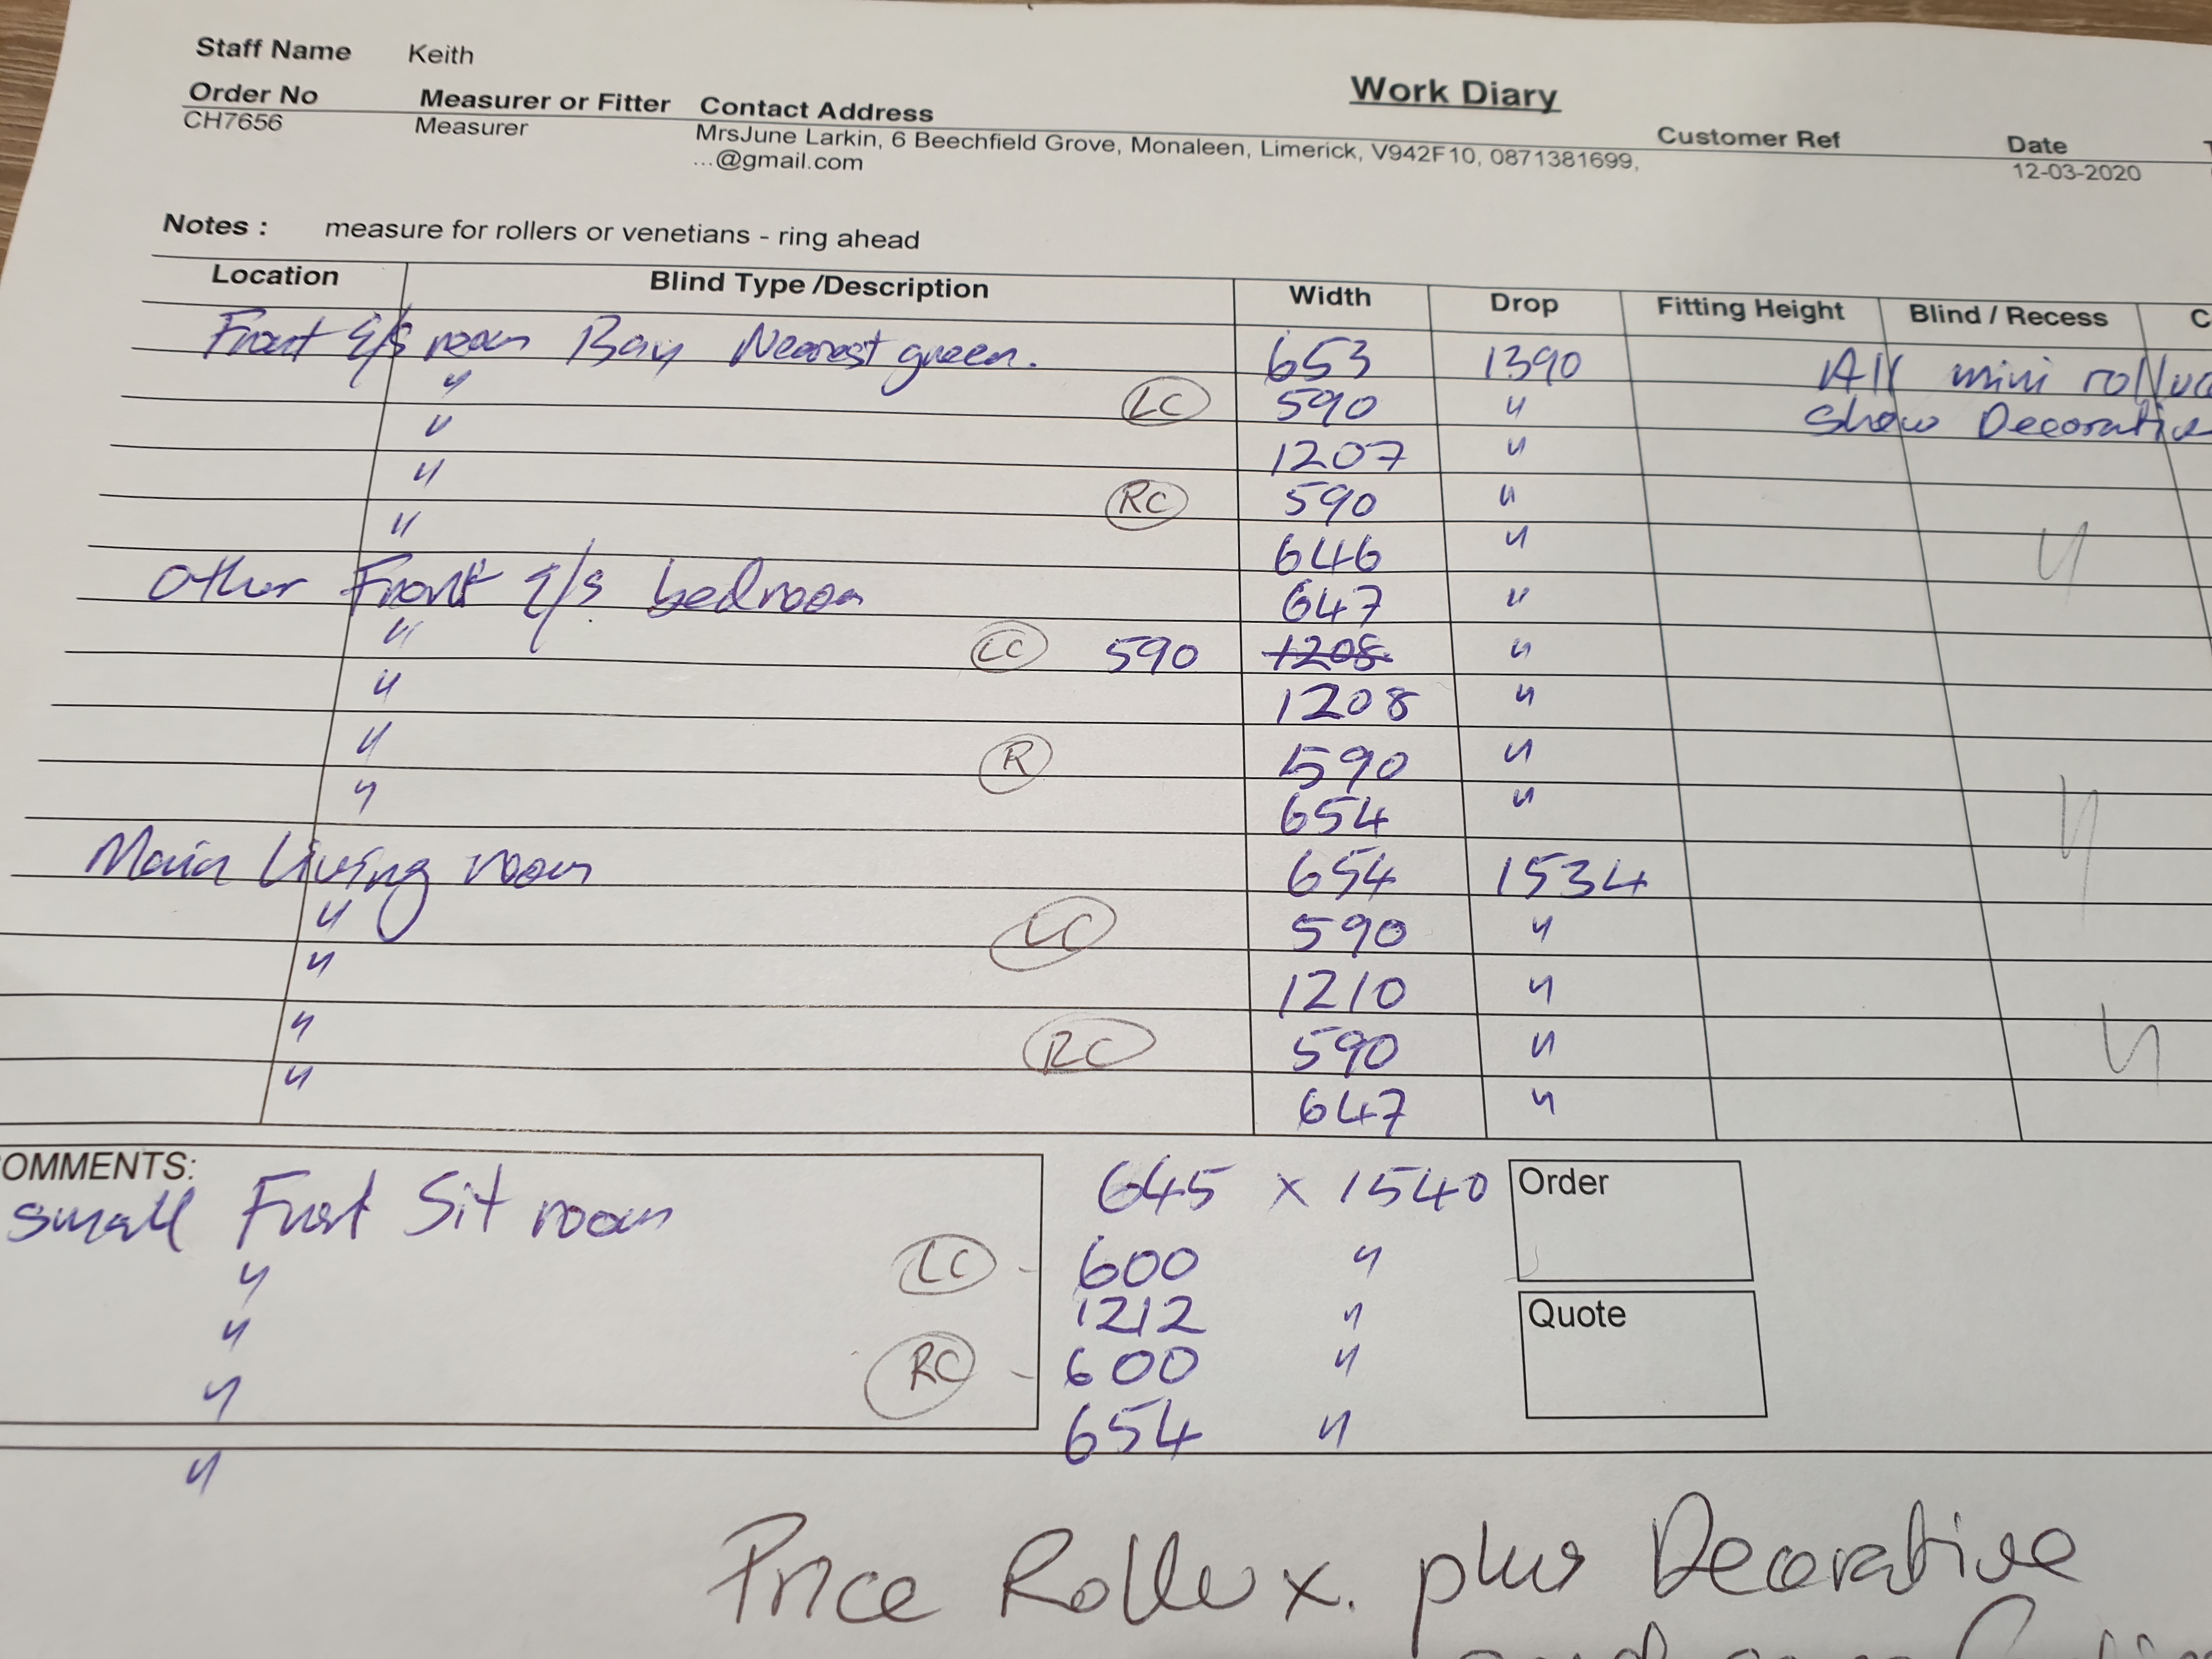 Staff Name Keith
Work Diary
Order No Measurer or Fitter Contact Address Customer Ref Date
CH7656 Measurer MrsJune Larkin, 6 Beechfield Grove, Monaleen, Limerick, V942F10, 0871381699, 12-03-2020
...@gmail.com
Notes : measure for rollers or venetians - ring ahead
Location Blind Type /Description Width Drop Fitting Height Blind / Recess C
Front room Bay Nearest green. 653 1390 All mini
" LC 590 " show
" 1207 "
" RC 590 "
" 646 "
Other Front bedroom 647 "
" LC 590 1208 "
" 1208 "
" R 590 "
" 654 "
Main Living room 654 1534
" LC 590 "
" 1210 "
" RC 590 "
" 647 "
OMMENTS:
small Front Sit room 645 x 1540
" LC - 600 "
" 1212 "
" RC - 600 "
" 654 "
Order
Quote
Price Rollux. plus Decorative